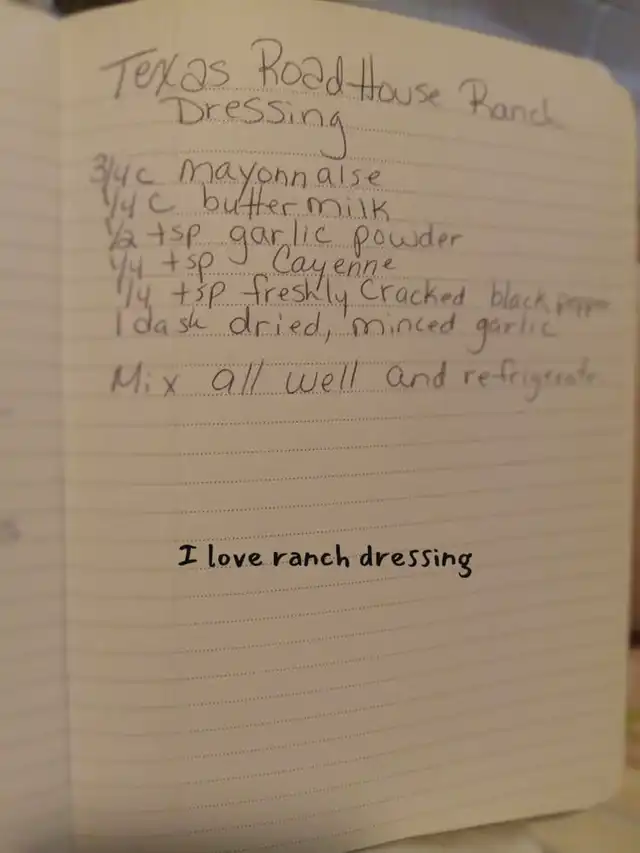 Texas RoadHouse Ranch
Dressing
3/4 c mayonnaise
1/4 c buttermilk
1/2 tsp garlic powder
1/4 tsp Cayenne
1/4 tsp freshly Cracked black pepper
1 dash dried, minced garlic
Mix all well and refrigerate
I love ranch dressing